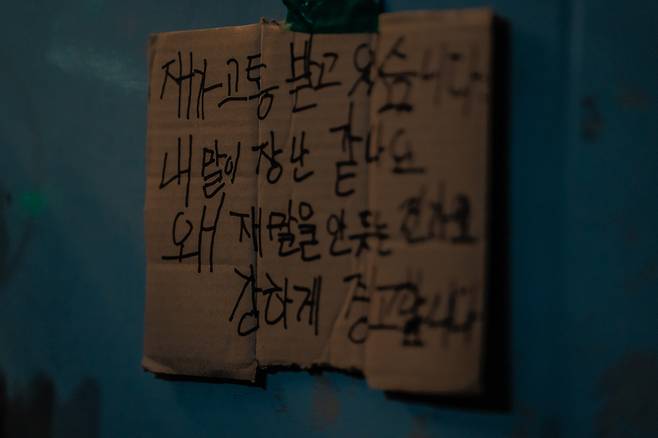 재가 고통 받고 있습니다
내 말이 장난 같나요
왜 재 말을 안 듯는 진짜로
강하게 경고합니다